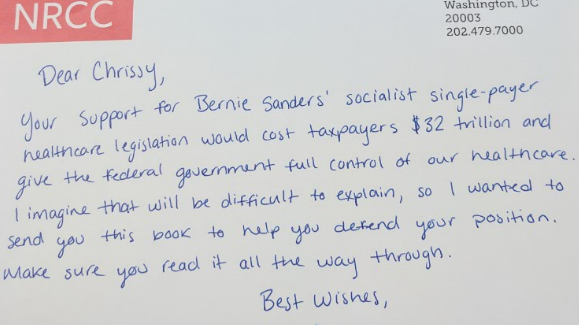 NRCC
Washington, DC
20003
202.479.7000
Dear Chrissy,
Your support for Bernie Sanders' socialist single-payer
healthcare legislation would cost taxpayers $32 trillion and
give the federal government full control of our healthcare.
I imagine that will be difficult to explain, so I wanted to
send you this book to help you defend your position.
Make sure you read it all the way through.
Best Wishes,